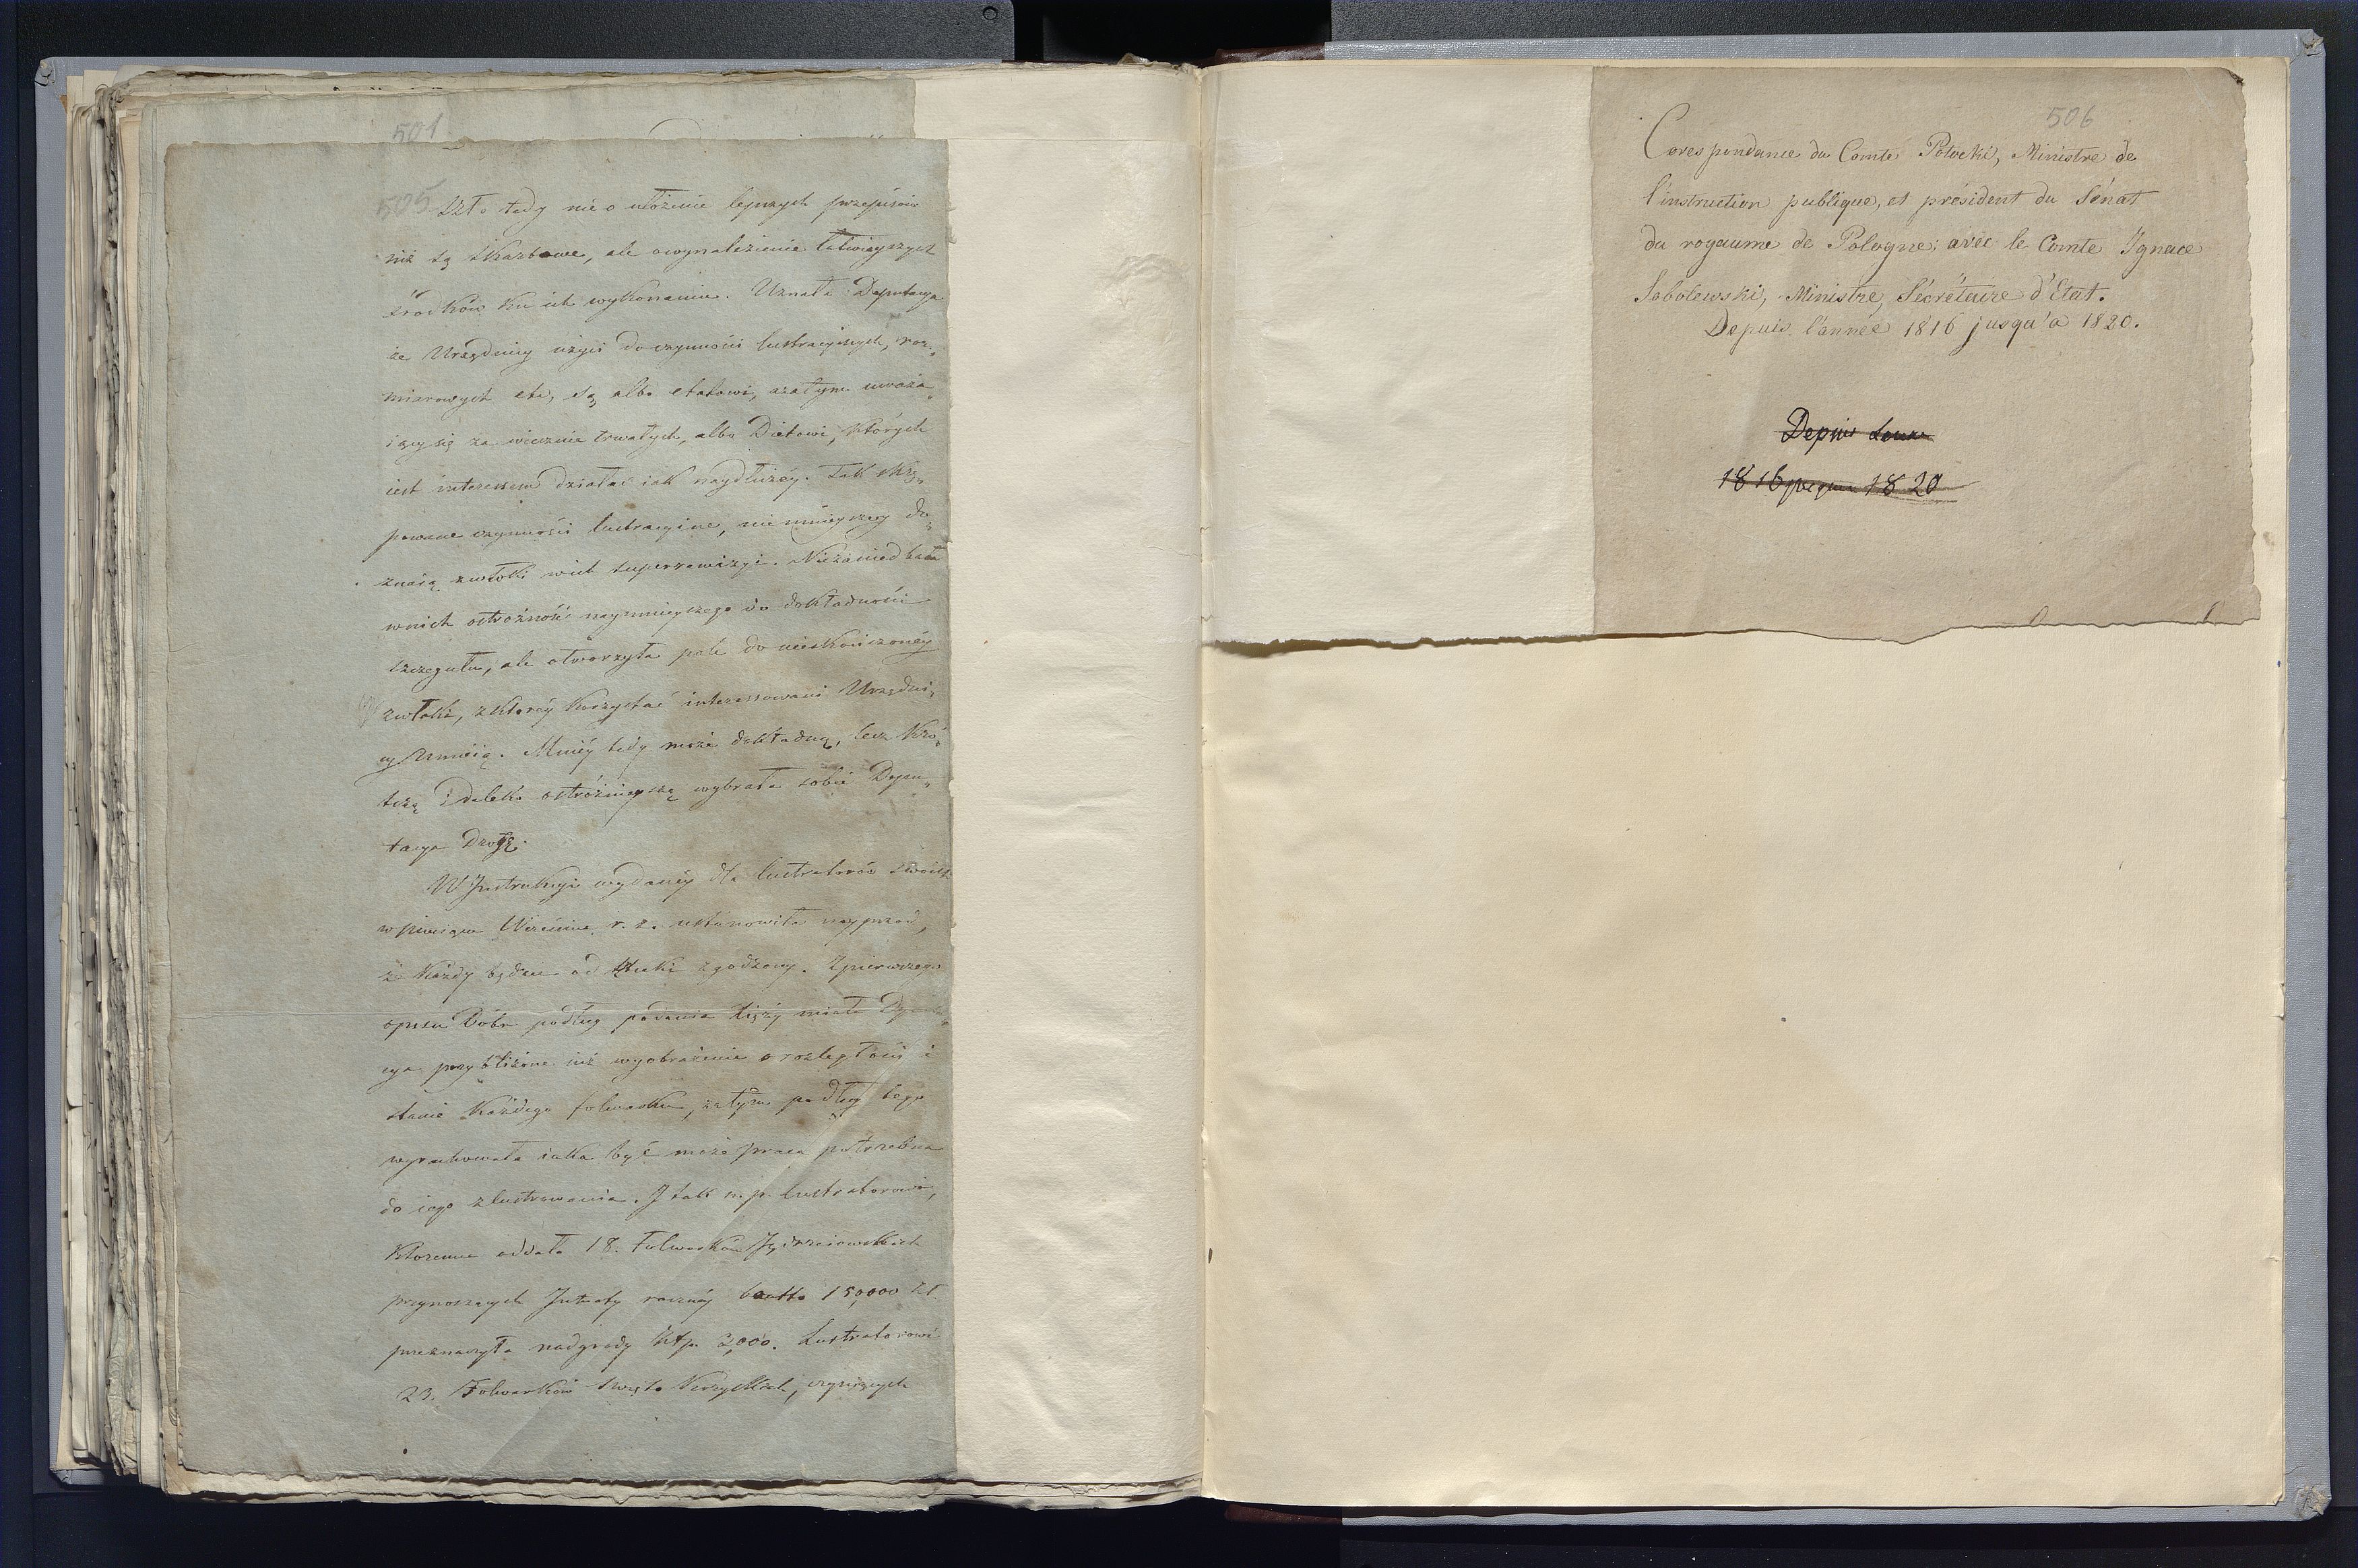 501
505
Szło tedy nie o ułożenie lepszych przepisów
niż są skarbowe, ale o wynalezienie łatwieyszych
środków ku ich wykonaniu. Uznała Deputacya
że Urzędnicy użyci do czynności lustracyinych, roz„
miarowych etc, są albo etatowi, azatym uważa„
iący się za wiecznie trwałych, albo Dietowi, których
iest interessem działać iak naydłużéy. Tak
powane czynności lustracyine, niemnieyszey do„
znaią zwłoki w ich superrewizyi. Niezaniedbała
wnich ostrożność naymnieyszego do dokładności
szczegułu, ale otworzyła pole do nieskończonéy
zwłoki, z któréy korzystać interessowani Urzędni„
cy umieią. Mniéy tedy może dokładną, lecz kró„
tszą i daleko ostrożnieyszą wybrała sobie Depu„
tacya Drogę.
W Instrukcyi wydanéy dla lustratorów swoich
w miesiącu Wrześniu r. z. ustanowiła nayprzód,
iż każdy będzie od sztuki zgodzony. Z pierwszego
opisu Dóbr podług podania Xięży miała Deputa„
cya przybliżone iuż wyobrażenie o rozległości i
stanie każdego folwarku, zatym podług tego
wyrachowała iaka być może praca potrzebna
do iego zlustrowania. I tak n. p. lustratorowi,
któremu oddała 18. folwarków Jędrzeiowskich
przynoszących Intraty rocznéy brutto 150,000 zł.
przeznaczyła nadgrody złp. 2,000. Lustratorowi
23. Folwarków Święto Krzyskich, czyniących
506
Corespondance du Comte Potocki, Ministre de
l'instruction publique, et président du Sénat
du royaume de Pologne: avec le Comte Ignace
Sobolewski, Ministre, Sécrétaire d'Etat.
Depuis l'année 1816 jusqu'a 1820.
Depuis
1816 1820